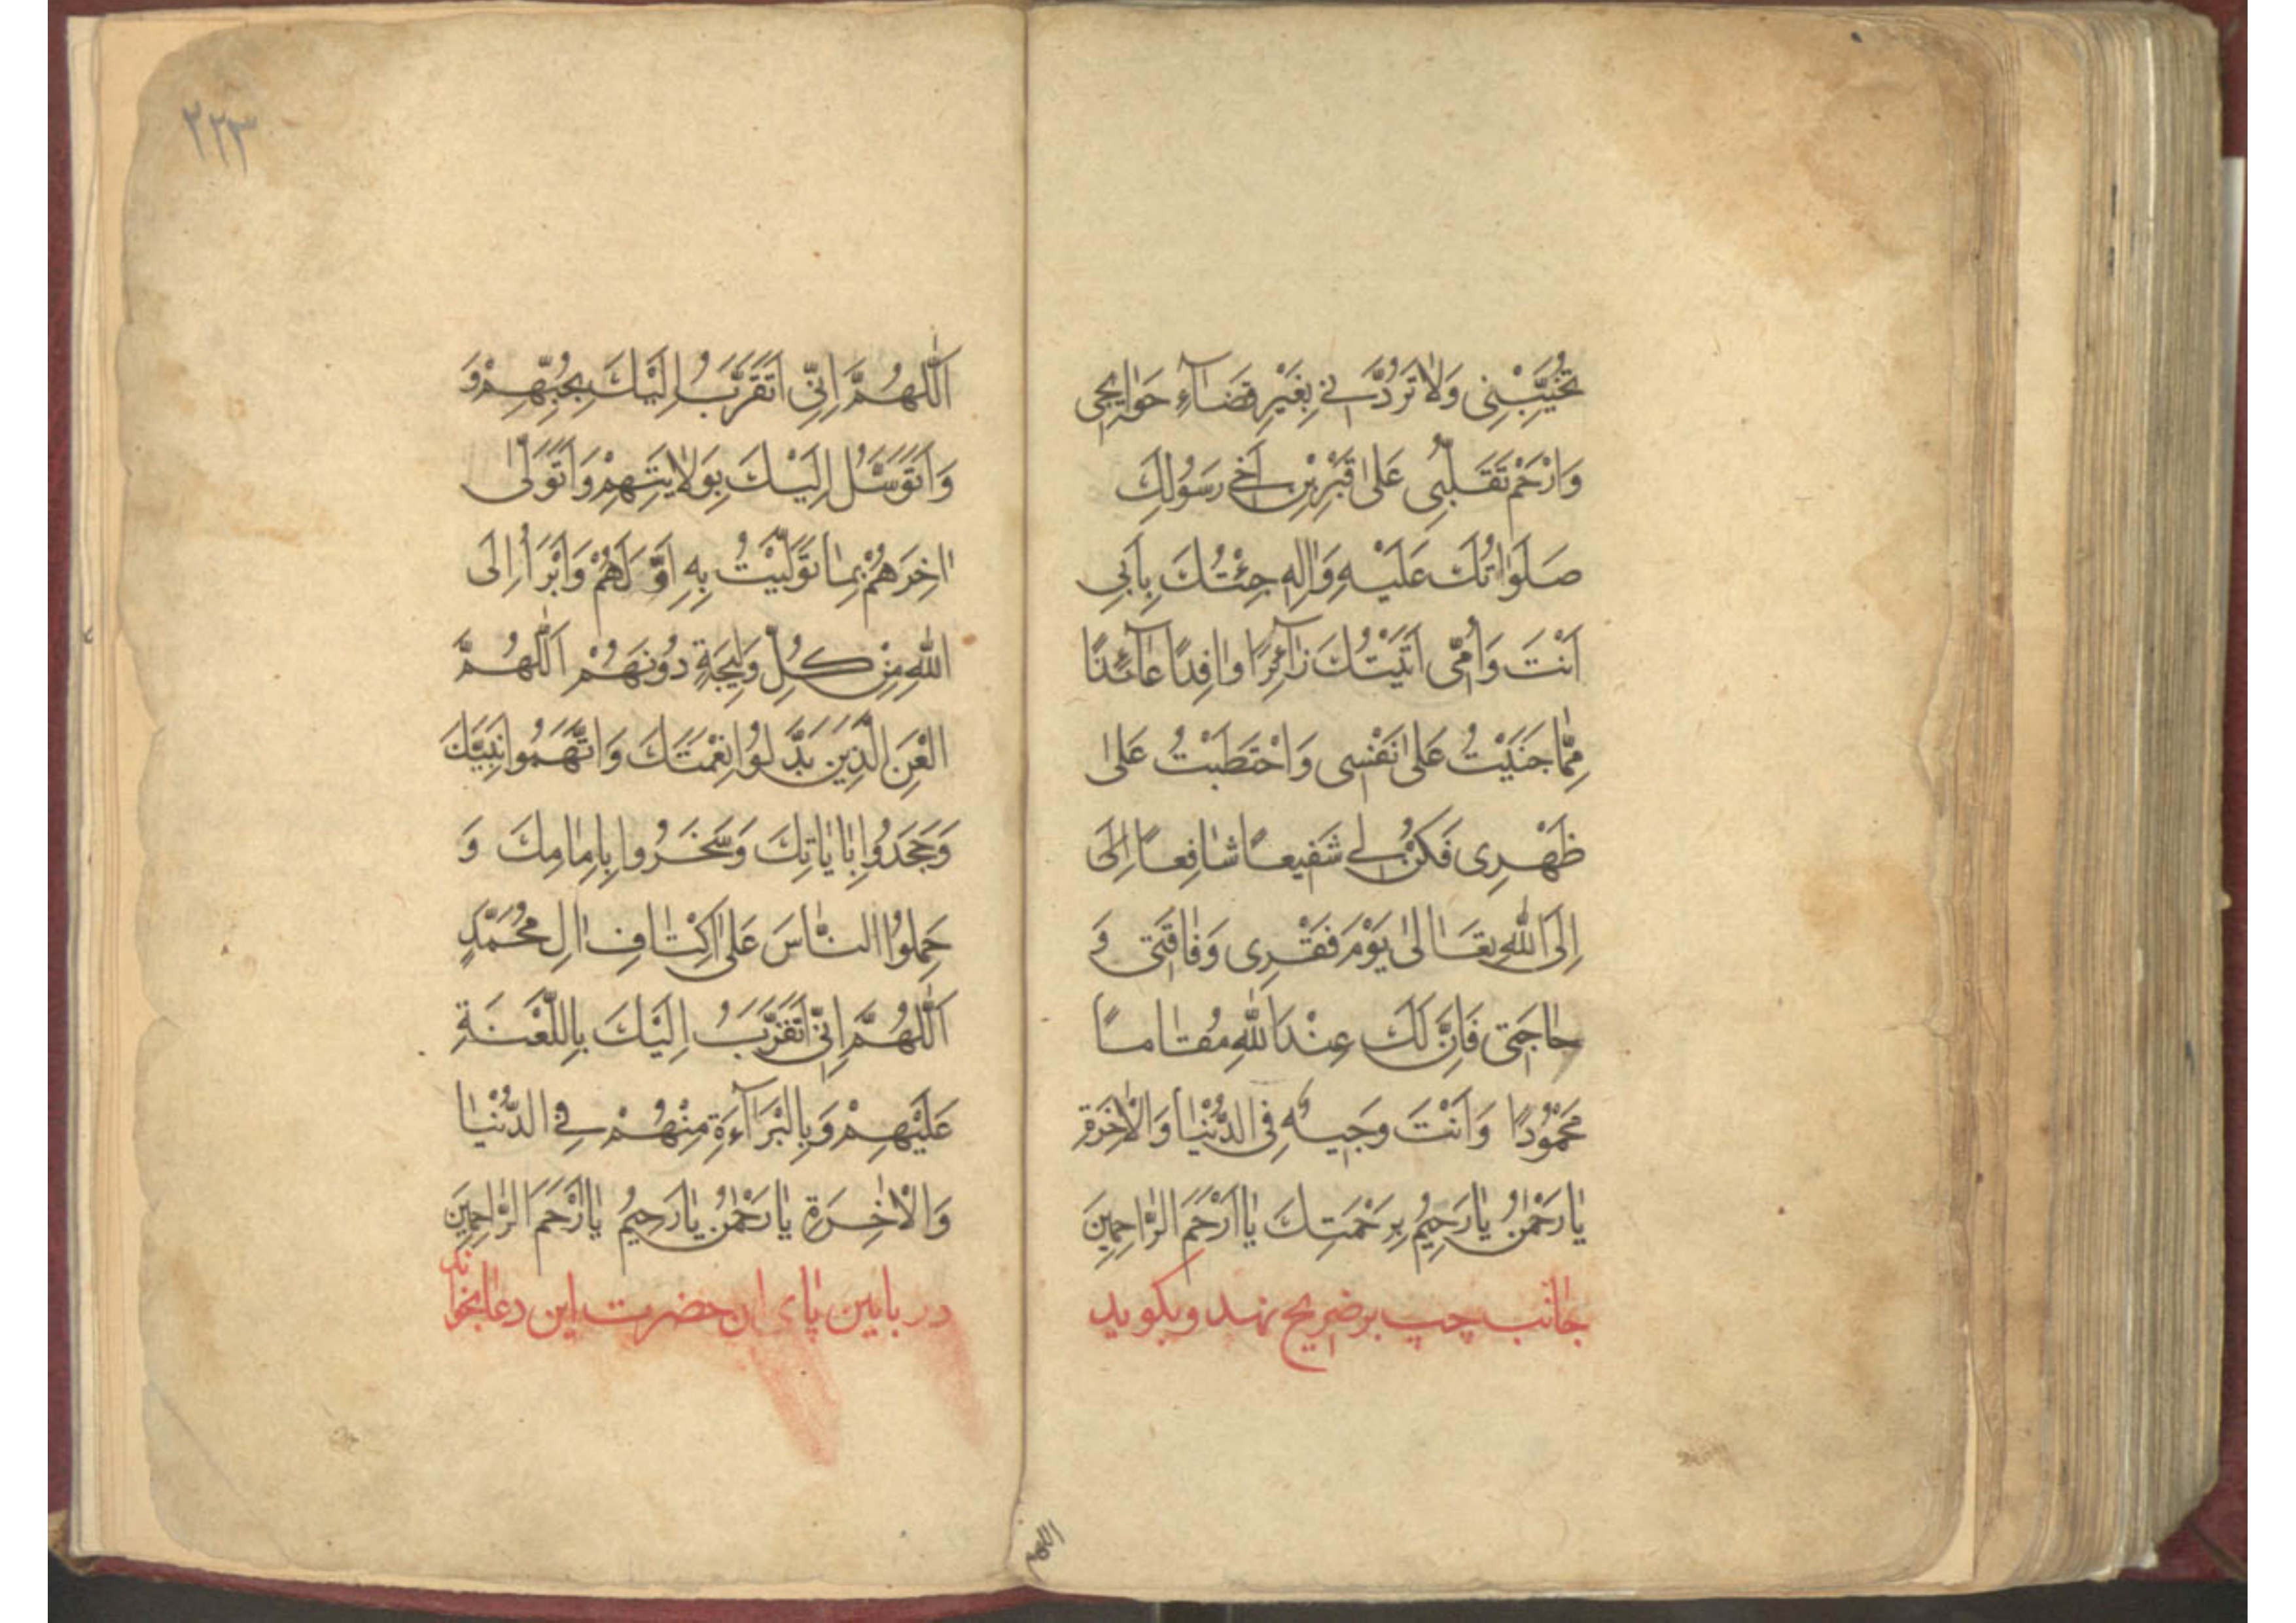 تُخَيِّبْنِی وَلَا تَرُدَّنِی بِغَيْرِ قَضَآءِ حَوَايِجِی
وَارْحَمْ تَقَلُّبِی عَلیٰ قَبْرِ بْنِ اَخِی رَسُولِكَ
صَلَوٰاتُكَ عَلَيْهِ وَاٰلِهِ جِئْتُكَ بِاَبِی
اَنْتَ وَاُمِّی اَتَيْتُكَ زٰآئِرًا وٰافِدًا عٰآئِذًا
مِمّٰا جَنَيْتُ عَلیٰ نَفْسِی وَاحْتَطَبْتُ عَلیٰ
ظَهْرِی فَكُنْ لِی شَفِيعًا شٰافِعًا اِلَی
اِلَی اللّٰهِ تَعَالیٰ يَوْمَ فَقْرِی وَفٰاقَتِی وَ
حٰاجَتِی فَاِنَّ لَكَ عِنْدَ اللّٰهِ مُقٰامًا
مَحْمُوْدًا وَاَنْتَ وَجِيهٌ فِی الدُّنْيٰا وَالْاٰخِرَةِ
يٰا رَحْمٰنُ يٰا رَحِيمُ بِرَحْمَتِكَ يٰا اَرْحَمَ الرّٰاحِمِينَ
جانب چپ بر ضریح نهد و بکوید
اللهم
٢٢٣
اَللّٰهُمَّ اِنِّی اَتَقَرَّبُ اِلَيْكَ بِحُبِّهِمْ وَ
وَاَتَوَسَّلُ اِلَيْكَ بِوَلٰايَتِهِمْ وَاَتَوَلّٰی
اٰخِرَهُمْ بِمٰا تَوَلَّيْتُ بِهِ اَوَّلَهُمْ وَاَبْرَأُ اِلَی
اللّٰهِ مِنْ كُلِّ وَلِيجَةٍ دُونَهُمْ اَللّٰهُمَّ
الْعَنِ الَّذِينَ بَدَّلُوا نِعْمَتَكَ وَاتَّهَمُوا نَبِيَّكَ
وَجَحَدُوا بِاٰيٰاتِكَ وَسَخَرُوا بِاِمٰامِكَ وَ
حَمِلُوا النّٰاسَ عَلیٰ اَكْتٰافِ اٰلِ مُحَمَّدٍ
اَللّٰهُمَّ اِنِّی اَتَقَرَّبُ اِلَيْكَ بِاللَّعْنَةِ
عَلَيْهِمْ وَبِالْبَرَآءَةِ مِنْهُمْ فِی الدُّنْيٰا
وَالْاٰخِرَةِ يٰا رَحْمٰنُ يٰا رَحِيمُ يٰا اَرْحَمَ الرّٰاحِمِينَ
در بایین پای ان حضرت این دعا بخواند